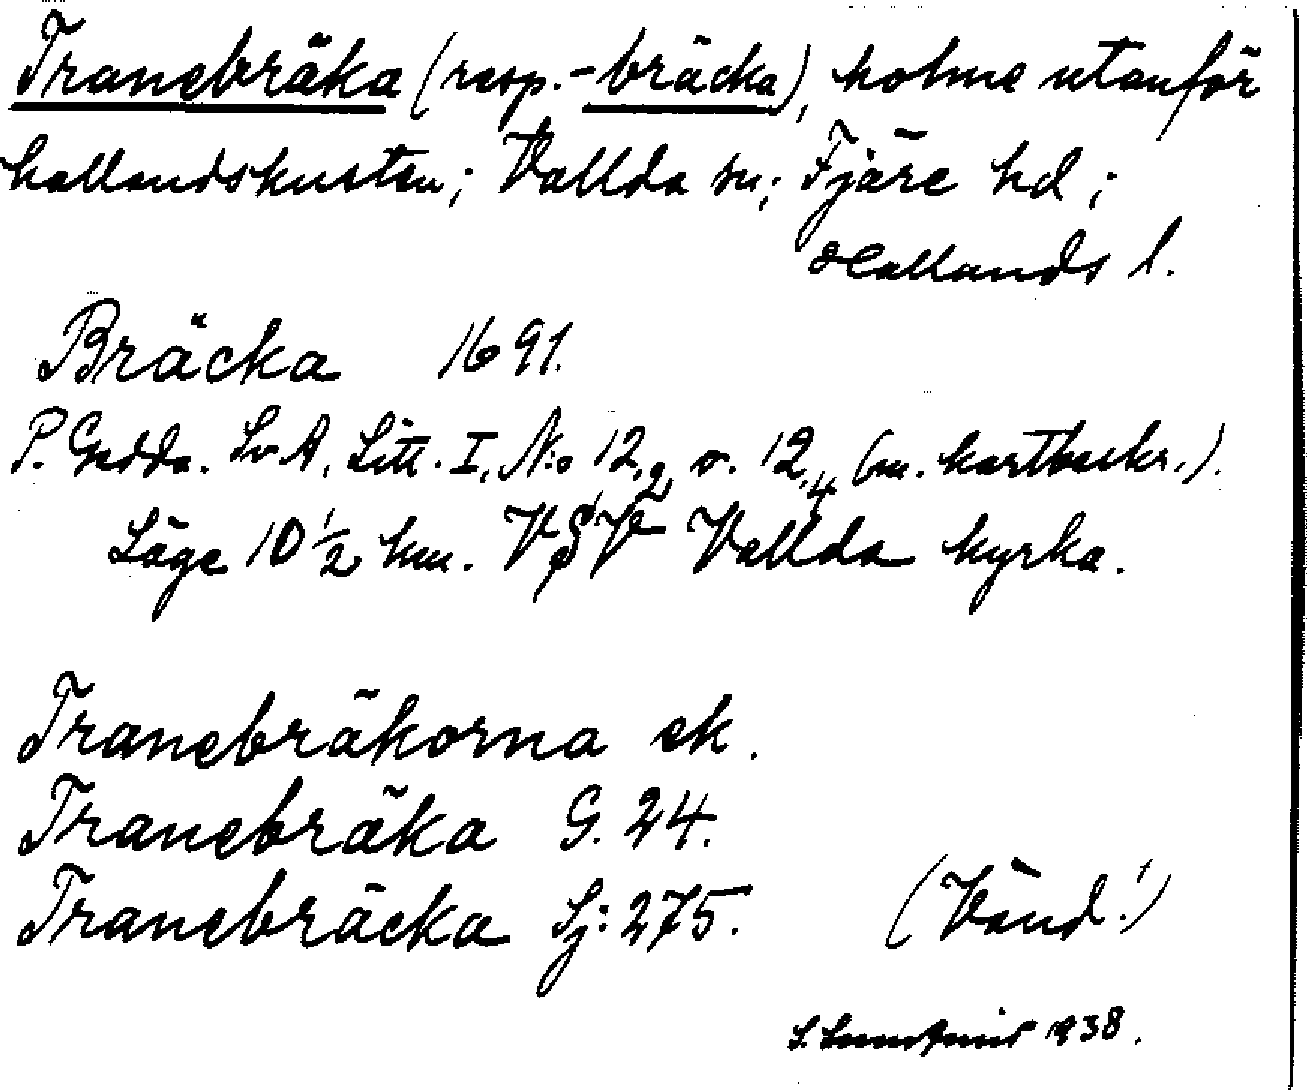 Tranebräka (resp. -bräcka), holme utanför
hallandskusten; Vallda sn; Fjäre hd;
Hallands l.
Bräcka 1691.
P. Gedda. Sv A, Litt. I, N:o 12,2 o. 12,4 (m. kartbeskr.).
Läge 10 1/2 km. VSV Vallda kyrka.
Tranebräkorna ek.
Tranebräka G. 24.
Tranebräcka Sj: 275. (Vänd!)
S. 1938.